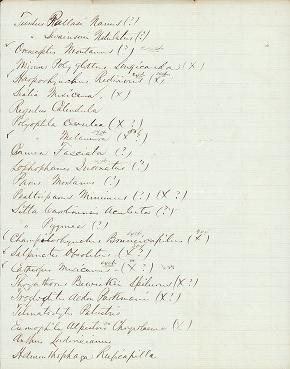 Turdus Pallasi Nanus (?)
" Swainsoni Ustulatus (?)
Oreoscoptes Montanus (?)
Mimus Polyglottus (X)
Harporhynchus Redivivus (X)
Sialia Mexicana (X)
Regulus Calendula
Polioptila Cerulea (X ?)
" Melanura (X ?)
Chamea Fasciata (?)
Lophophanes Inornatus (?)
Parus Montanus (?)
Psaltriparus Minimus (?) (X ?)
Sitta Carolinensis Aculeata (?)
" Pygmea (?)
Campylorhynchus Brunneicapillus (X)
Salpinctes Obsoletus (X ?)
Catherpes Mexicanus (X ?)
Thryothorus Bewickii Spilurus (X ?)
Troglodytes Aedon Parkmani (X ?)
Telmatodytes Palustris
Eremophila Alpestris Chrysolaema (X)
Anthus Ludovicianus
Helminthophaga Ruficapilla